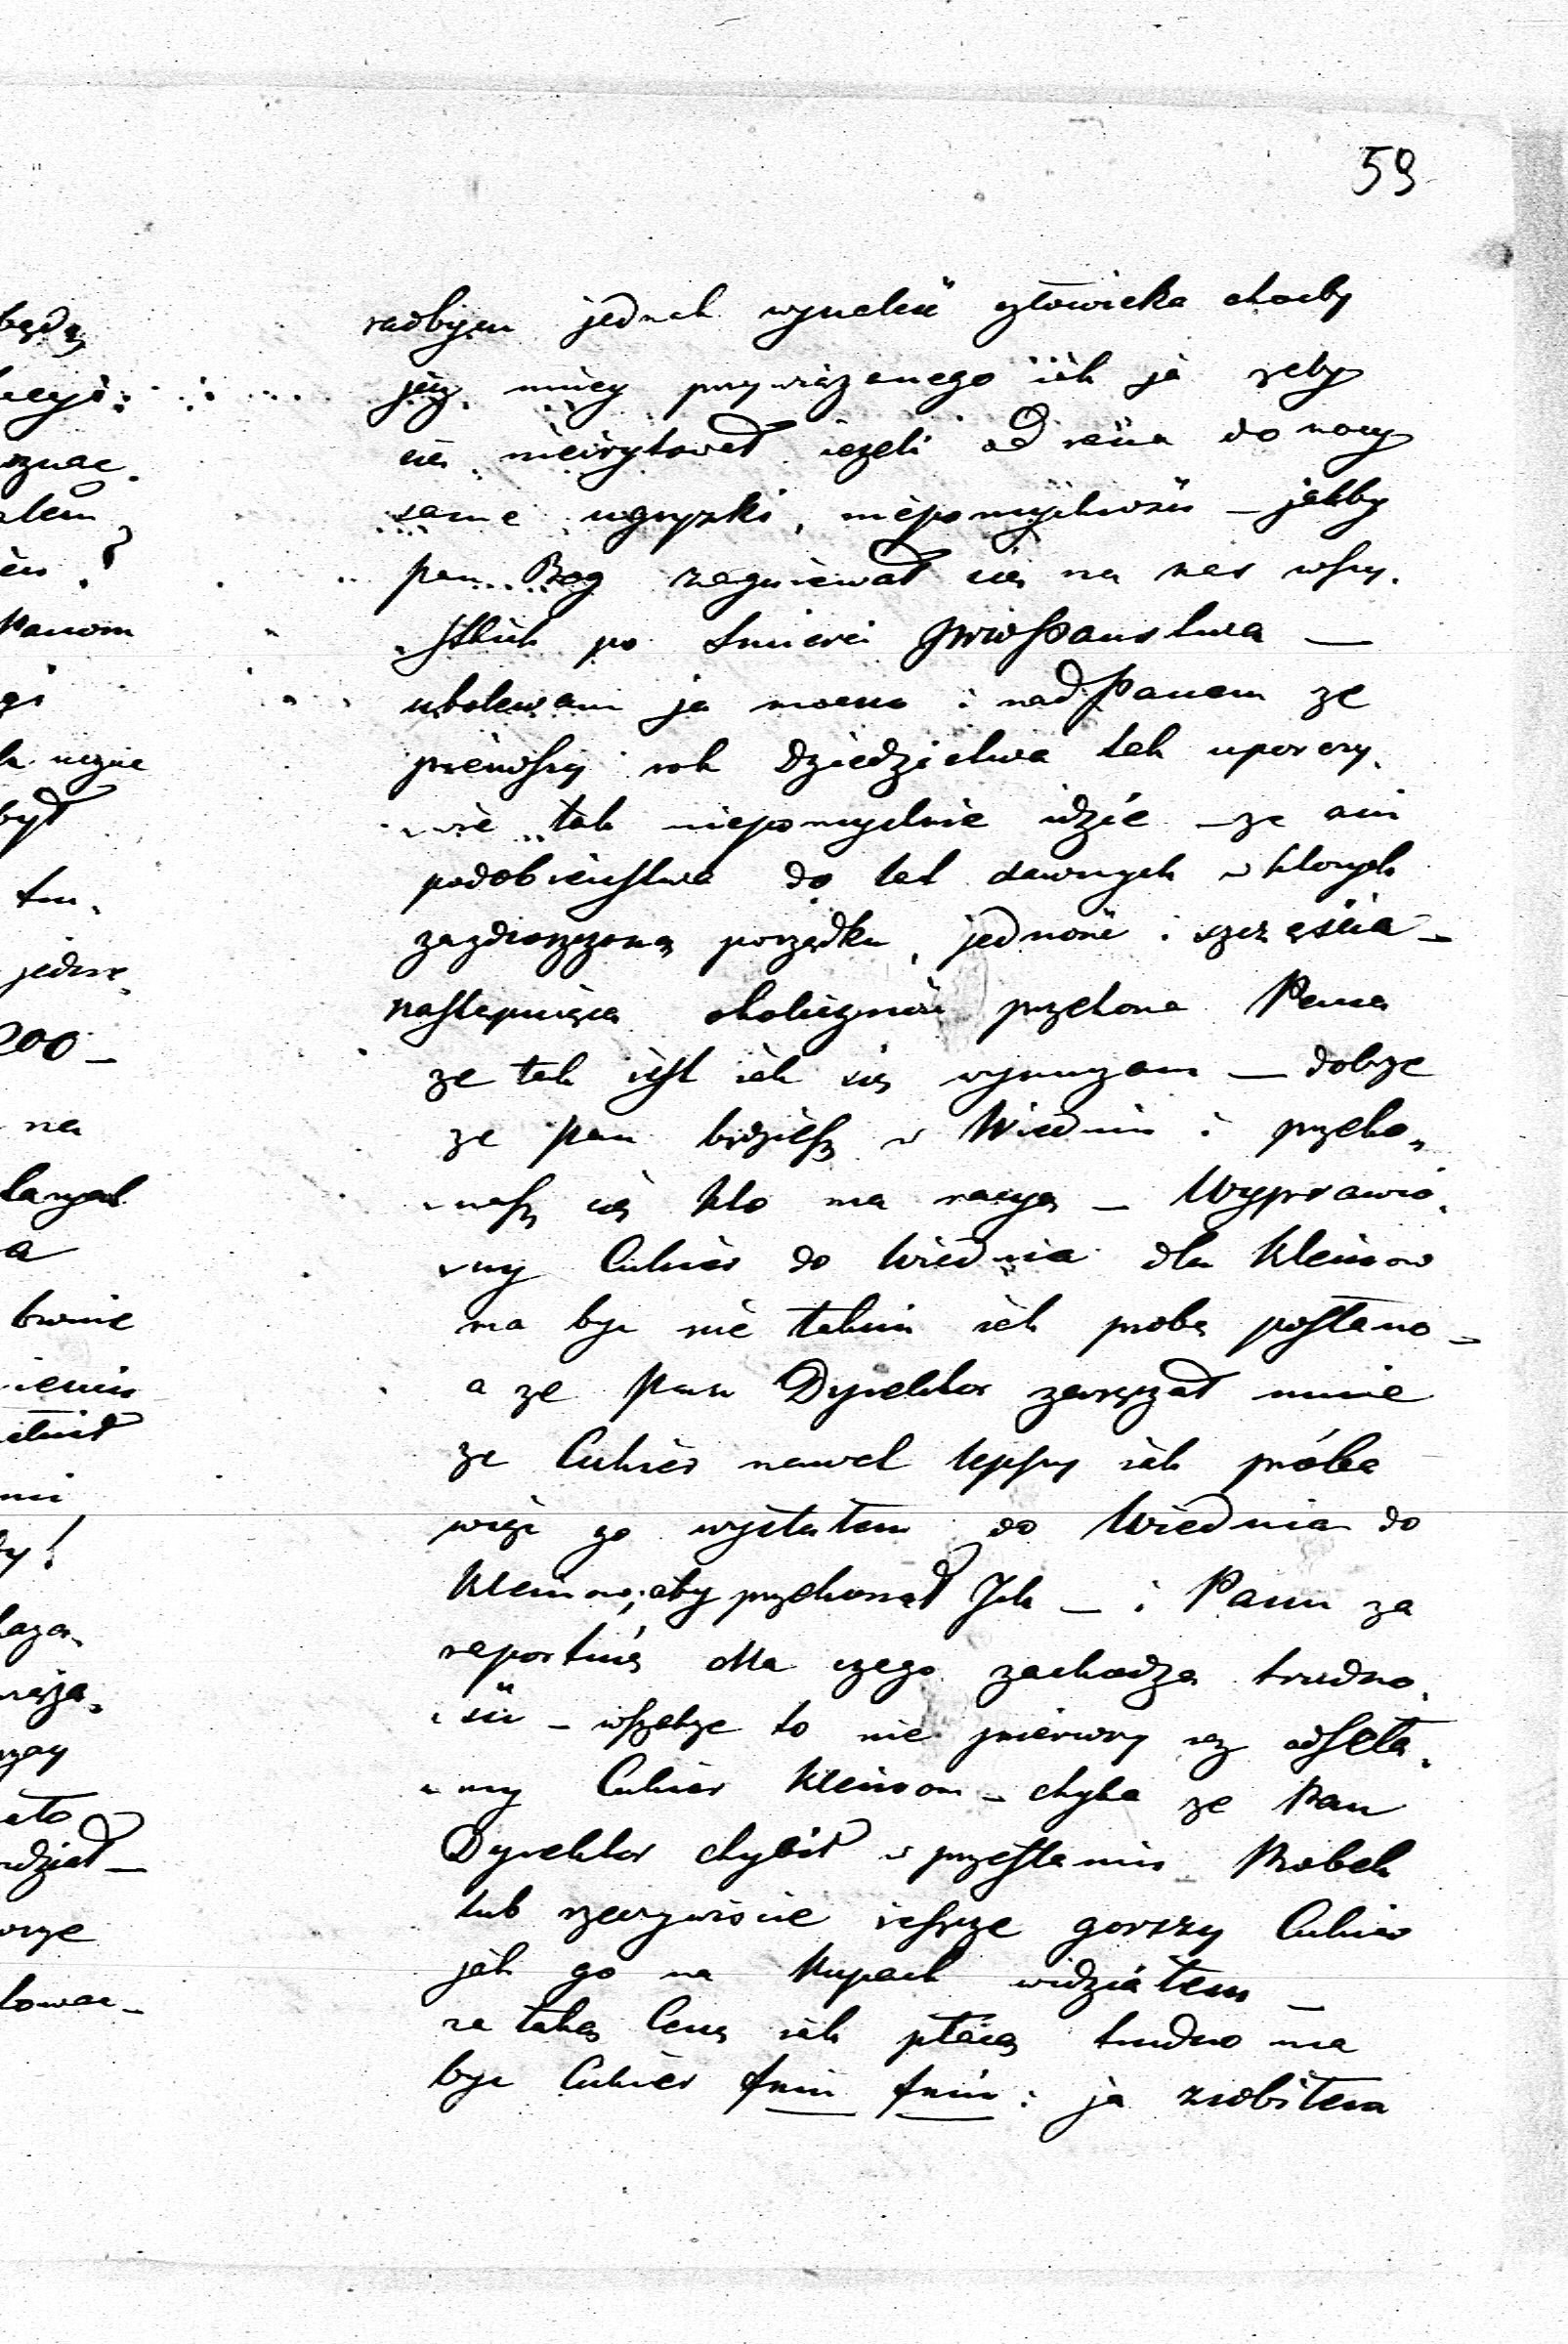 59
radbym jednak wynaleść człowieka choćby
już mniéj przywiązanego iak ja żeby
się nieirytował ieżeli od rana do nocy
same ugryzki, niepomyślności – jakby
pan Bog zagniewał się na nas wszy,
,stkich po śmierci
ubolewam ja mocno i nad Panem że
pierwszy rok Dziedzictwa tak uporczy,
,wie tak niepomyślnie idzie – że ani
podobieństwa do lat dawnych w ktorych
porządku, jedności i szczęścia –
następująca okoliczność przekona Pana
że tak iest iak się – dobrze
że Pan będziesz w Wiedniu i przeko,
,nasz się kto ma racyą – Wyprawio,
,ny Cukier do Wiednia dla Kleinow
ma być nie takim iak probę posłano –
a że Pan Dyrektor zaręczał mnie
że Cukier nawet lepszy iak próba
więc go wysłałem do Wiednia do
Kleinow, aby przekonał Ich – i Panu za
dla czego zachodzą trudno,
,ści – wszakże to nie pierwszy raz
,ny Cukier Kleinom – chyba że Pan
Dyrektor chybił w przesłaniu Probek
lub rzeczywiście ieszcze gorszy Cukier
jak go na Kupach widziałem –
za taką Cenę iak płacą trudno ma
być Cukier fein fein: ja zrobiłem
będą
Panom
był
200 –
na
a